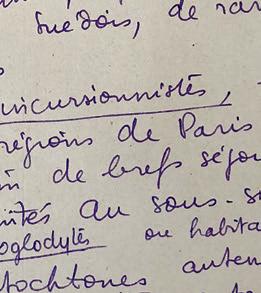 suédois, de rar
incursionnistes,
régions de Paris
de brefs séjou
ntés au sous-s
oglodytes ou habita
tochtones anten